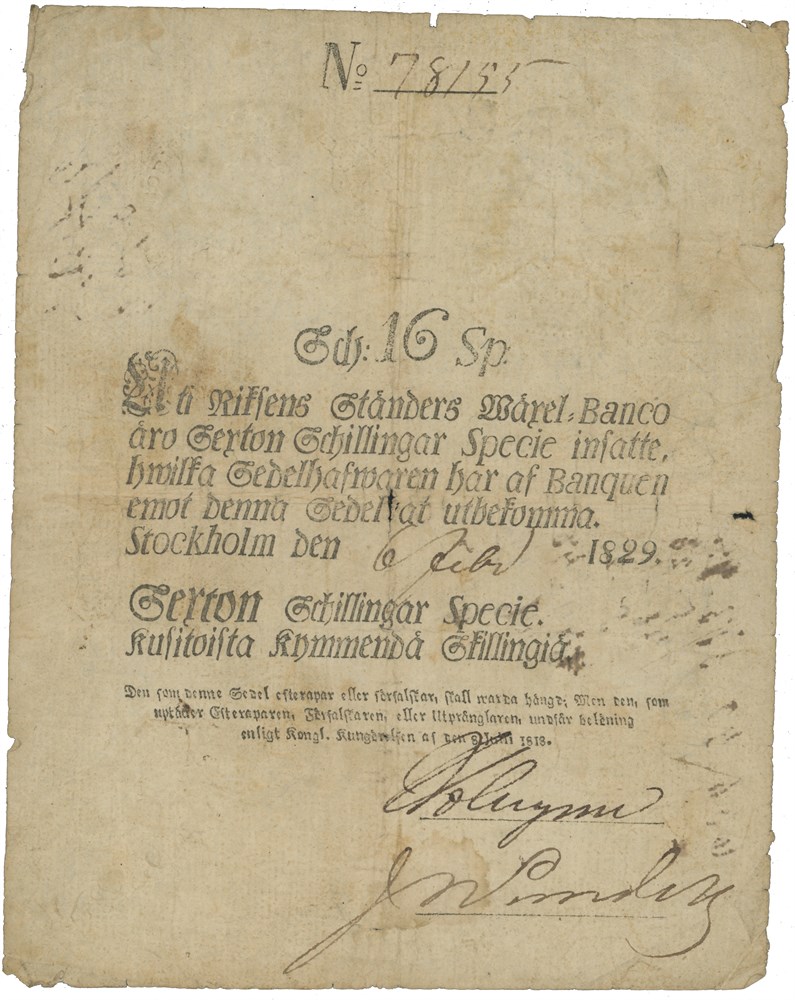 No 78155
Sch: 16 Sp.
Uti Riksens Ständers Wäxel-Banco
äro Sexton Schillingar Specie insatte,
hwilka Sedelhafwaren har af Banquen
emot denna Sedel at utbekomma.
Stockholm den 6 Febr 1829.
Sexton Schillingar Specie.
Kusitoista Kymmendä Skillingiä.
Den som denne Sedel efterapar eller förfalskar, skall warda hängd; Men den, som
uptäcker Efteraparen, Förfalskaren, eller Utprånglaren, undfår belöning
enligt Kongl. Kungörelsen af den 8 Juni 1818.